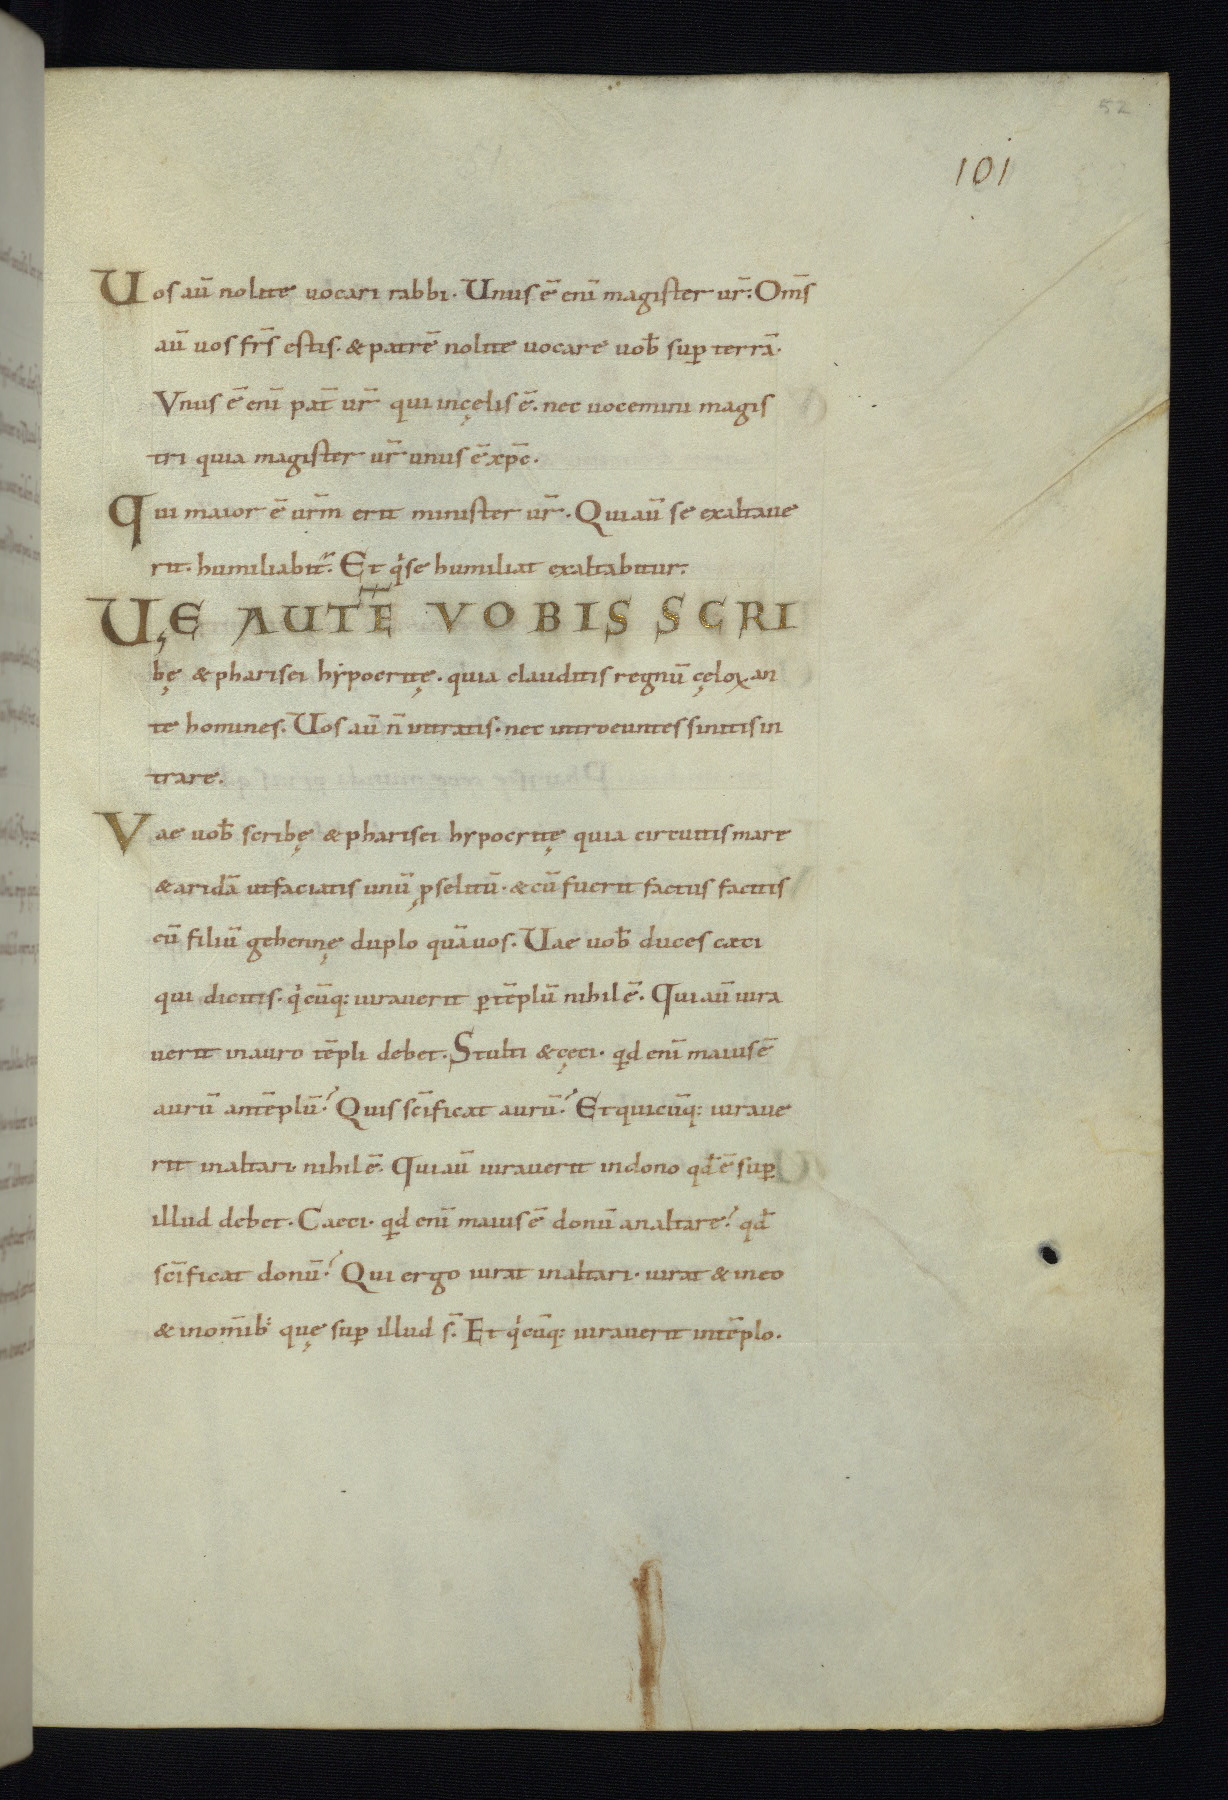 52
101
Uos aū nolite uocari rabbi. Unus ē eni᷄ magister ur̄: Om̄s
aū uos fr̄s estis. & patrē nolite uocare uob̄ sup̲ terrā.
Vnus ē enī pat̄ ur̄ qui in cęlis ē. nec uocemini magis
tri quia magister ur̄ unus ē xp̄c.
Qui maior ē ur̄m erit minister ur̄. Qui aū se exaltaue
rit. humiliabit᷑. Et qͥ se humiliat exaltabitur.
UĘ AUTĒ VOBIS SCRI
bę & pharisei hẏpocritę. quia clauditis regnū cęloꝝ an
te homines. Uos aū n̄ intratis. nec introeuntes sinitis in
trare.
Vae uob̄ scribę & pharisei hypocritę quia circuitis mare
& aridā ut faciatis unū ꝓselitū. & cū fuerit factus facitis
eū filiū gehennę duplo quā uos. Uae uob̄ duces caeci
qui dicitis. qͥcūq: iurauerit ꝑ tēplū nihil ē. Qui aū iura
uerit in auro tēpli debet. Stulti & cęci. qͥd enī maius ē
aurū an tēplū? Quis sc̄ificat aurū? Et quicūq: iuraue
rit in altari. nihil ē. Qui aū iurauerit in dono qd̄ ē sup̲
illud debet. Caeci. qͥd enī maius ē donū an altare? qd̄
sc̄ificat donū? Qui ergo iurat in altari. iurat & in eo
& in om̄ib: quę sup̲ illud s̄. Et qͥcūq: iurauerit in tēplo.